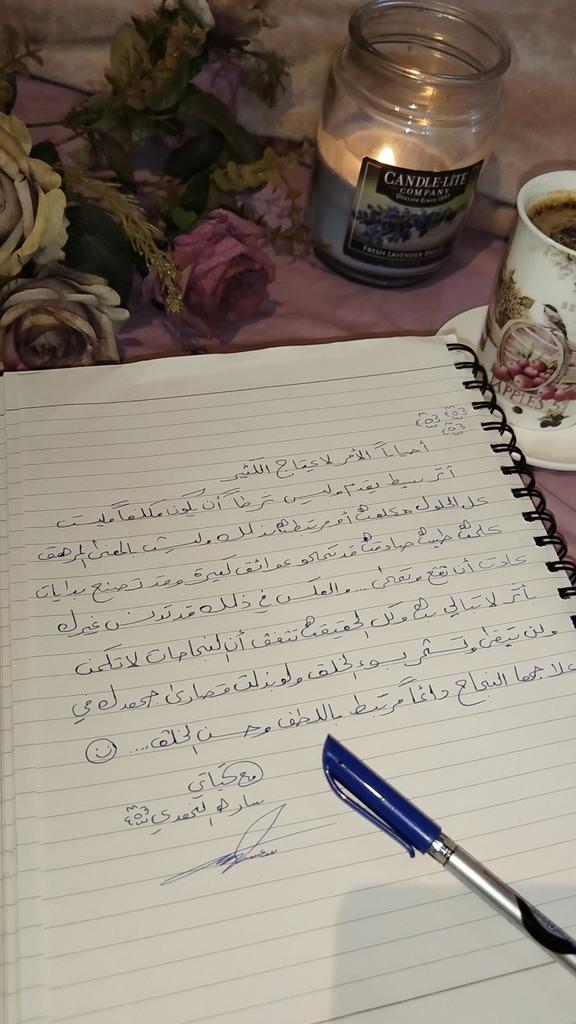 CANDLE-LITE
COMPANY
FRESH LAVENDER
APPLES
أحياناً الأمر لا يحتاج الكثير
أثر بسيط يقدم وليس شرطاً أن يكون مكلفاً فليست
كل الحلول مكلفة أو مرتبطة بذلك وليست بالمعنى المرهق
كلمة طيبة صادقة قد تمحو عوائق كبيرة وقد تصنع بدايات
عادت أن تقع وتفنى ... والعكس في ذلك قد تدوس غيرك
بأثر لا تبالي به وكل الحقيقة تتفق أن النجاحات لا تكمن
ولن تبقى وتستمر بسوء الخلق ولو بذلت قصارى جهدك في
علاجها النجاح دائماً مرتبط باللطف وحسن الخلق ....
مع تحياتي
سارة